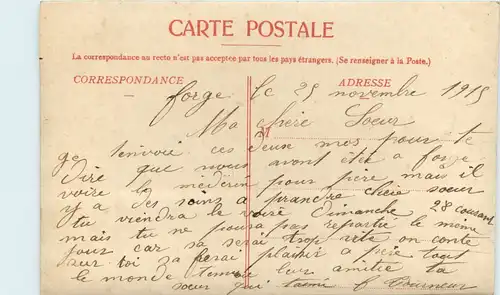 CARTE POSTALE
La correspondance au recto n'est pas acceptée par tous les pays étrangers. (Se renseigner à la Poste.)
CORRESPONDANCE
ADRESSE
forge le 25 novembre 1915
Ma chère Soeur
M
ge t'envoie ces deux mos pour te
dire que nous avont été a forge
voire le médecin pour père mais il
y a des soins a prandre chère soeur
tu viendra le voire dimanche 28 courant
mais tu ne poura pas repartir le meme
jour car sa serai trop vite on conte
sur toi sa ferai plaisir a père tout
le monde t'envoie leur amitié ta
soeur qui t'aime